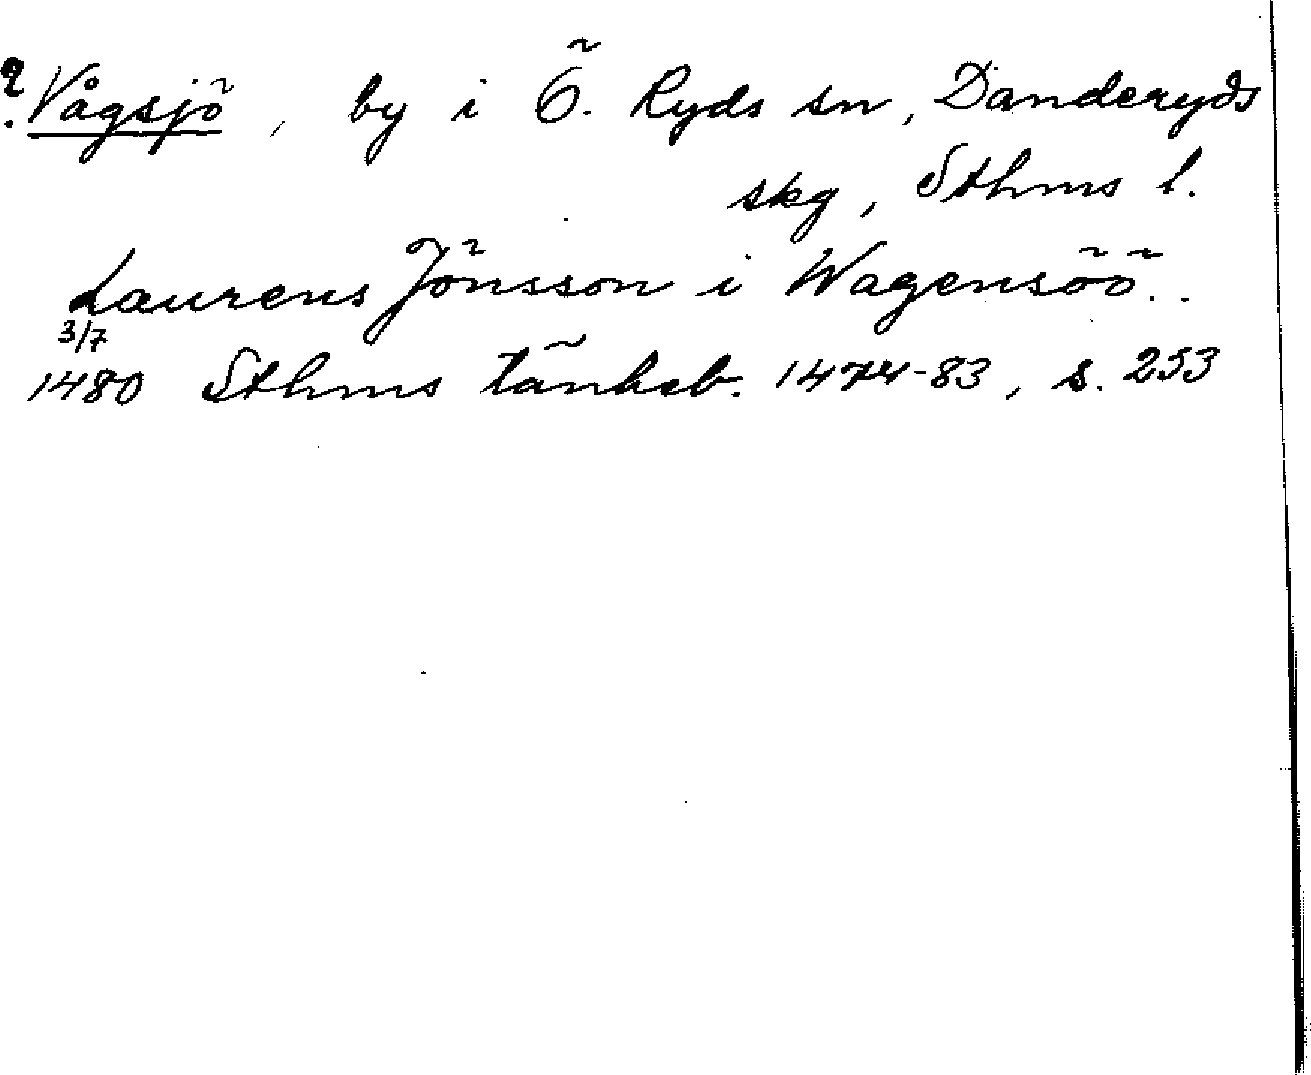 ? Vågsjö, by i Ö. Ryds sn, Danderyds
skg, Sthms l.
Laurens Jönsson i Wagensöö..
3/7
1480 Sthms tänkeb. 1474-83, s. 253